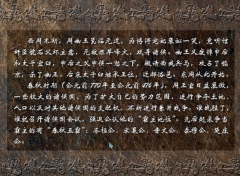 西周末期，周幽王昏庸无道，为博得宠妃褒姒一笑，竟听信
奸臣虢石父的主意，点燃烽火，戏弄诸侯。幽王又废掉申后
和太子宜臼，申后之父申侯一怒之下，联络西戎兵马，攻占了镐
京，杀了幽王。后来太子宜臼继承王位，迁都洛邑，东周从此开始。
春秋时期（公元前770年至公元前476年），周王室日益衰微，
一些较大的诸侯国，为了扩大自己的势力范围，进行争夺土地、
人口以及对其他诸侯国的支配权，不断进行兼并战争。谁战胜了，
谁就召开诸侯国会议，强迫会议他的“霸主地位”。先后起来争当
霸主的有“春秋五霸”：齐桓公、宋襄公、晋文公、秦穆公、楚庄
公。